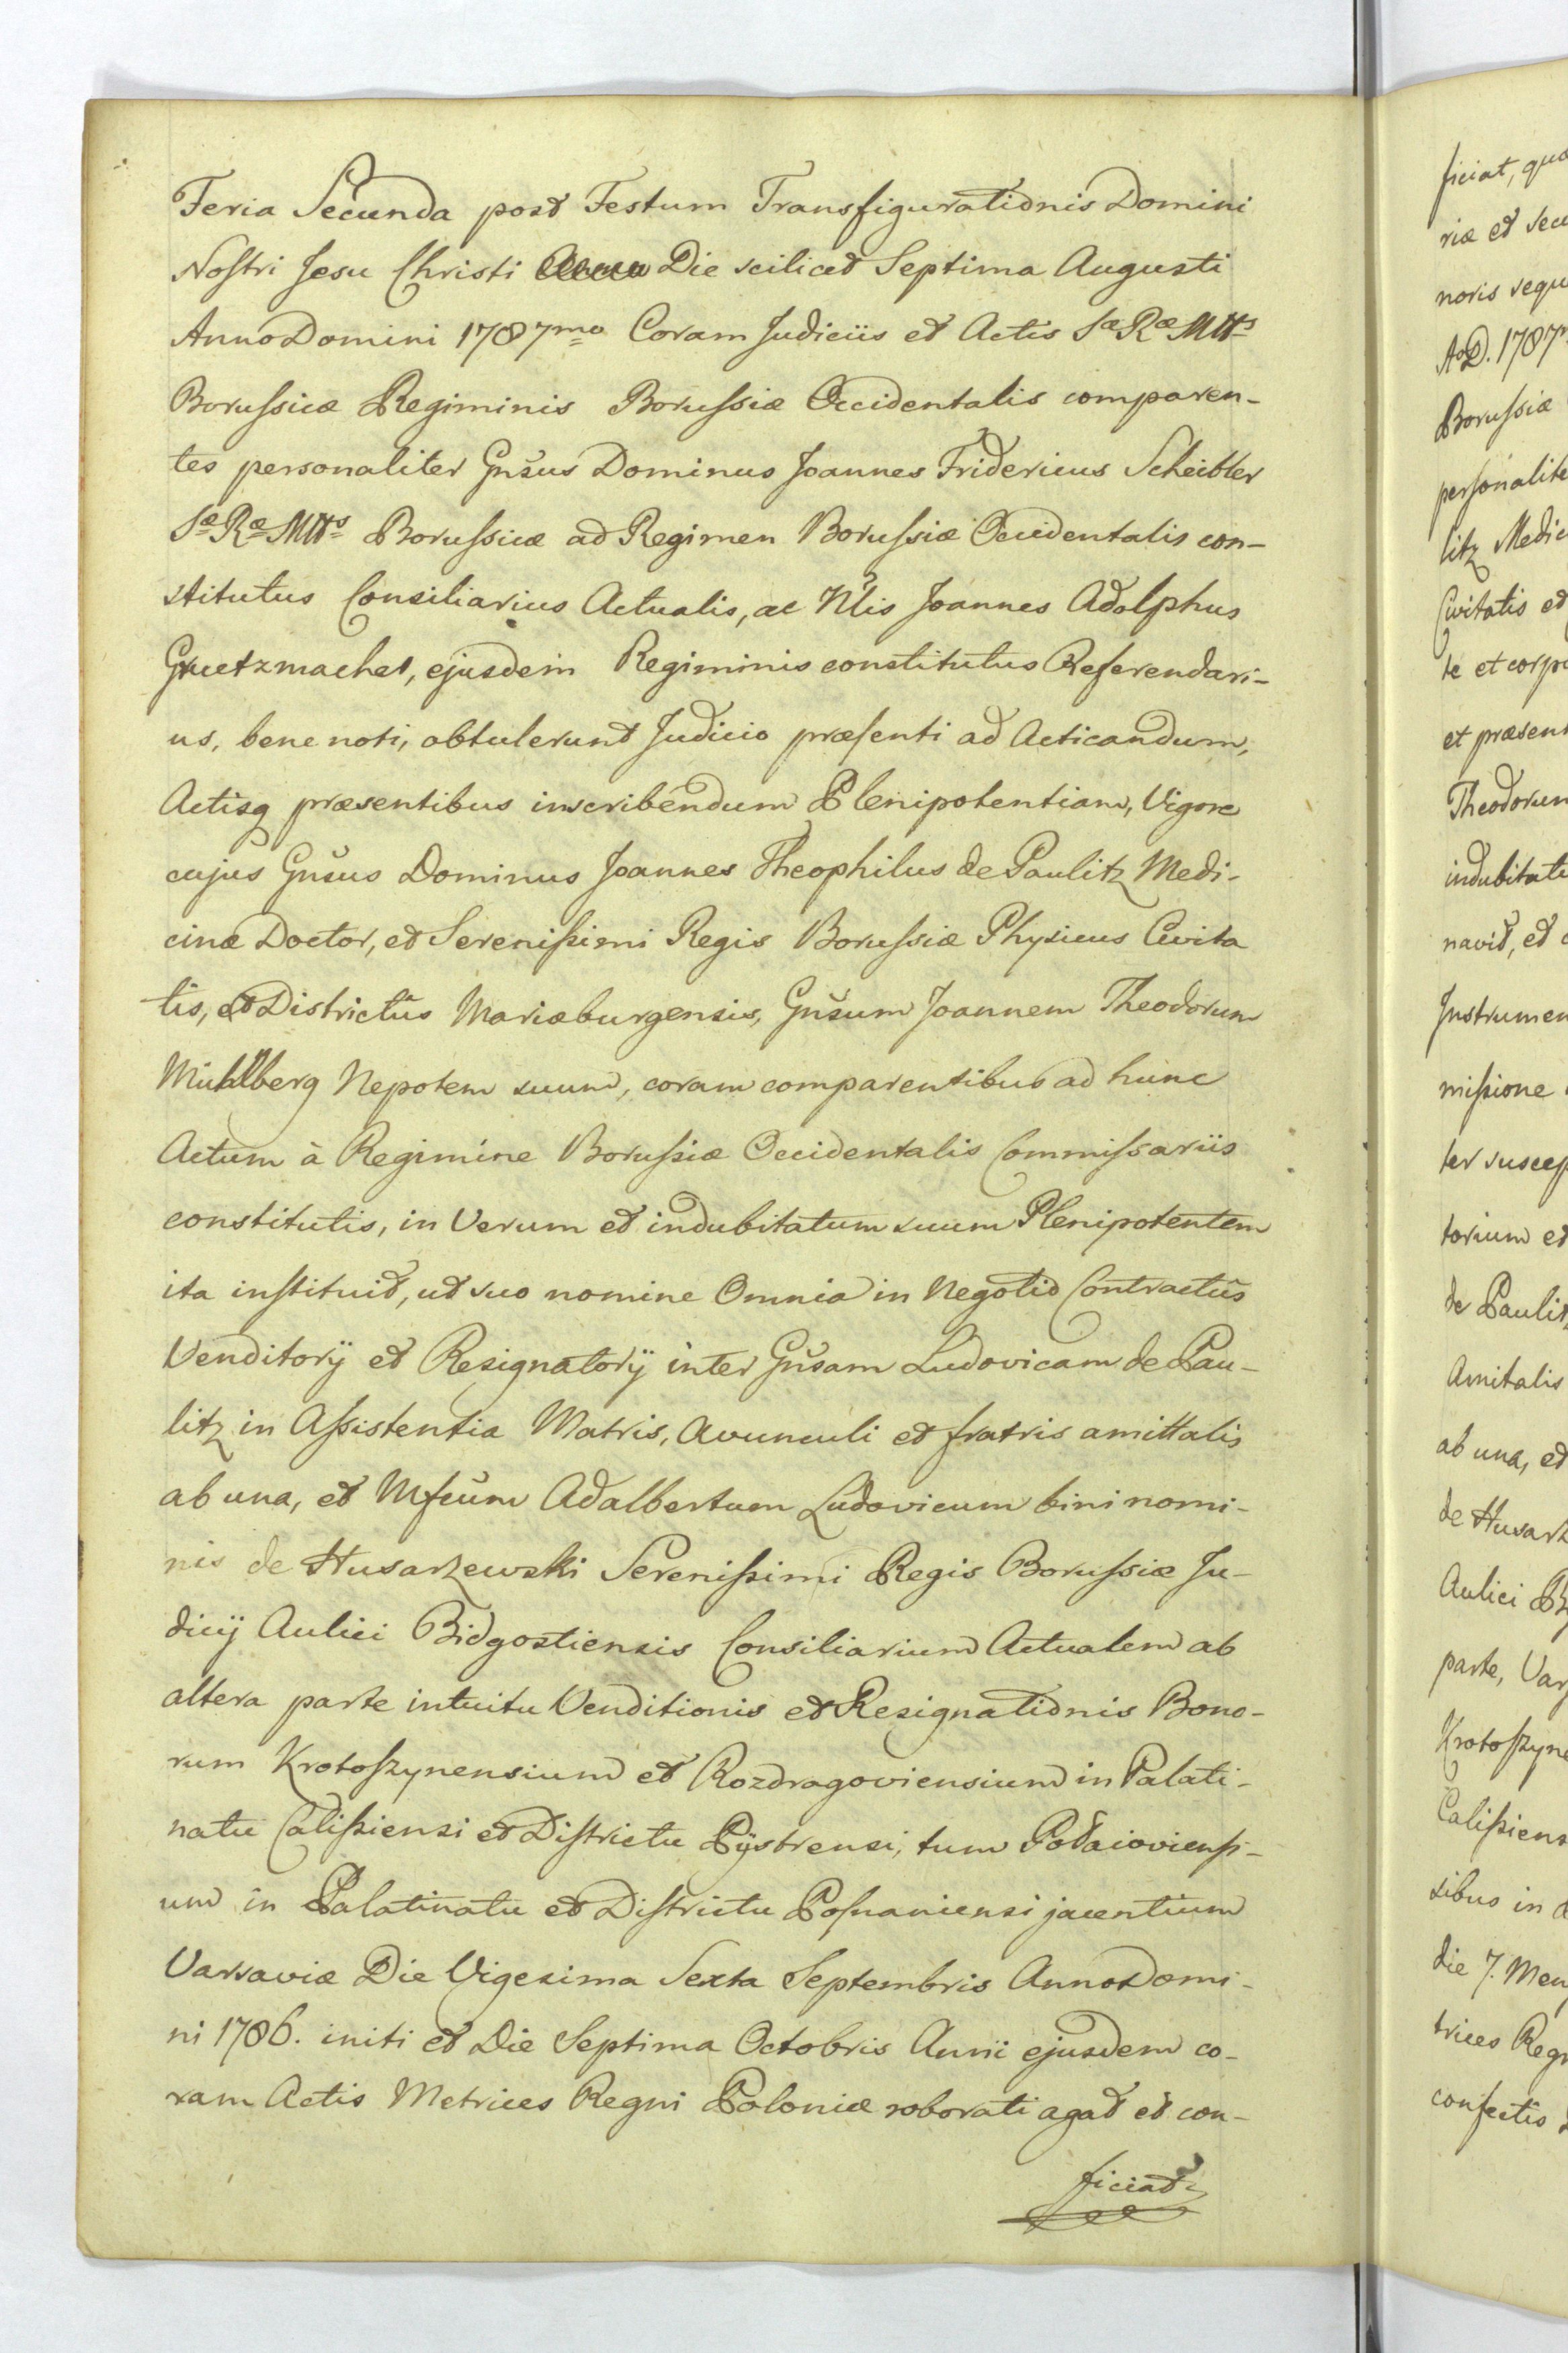 Feria Secunda post Festum Transfigurationis Domini
Nostri Jesu Christi Die scilicet Septima Augusti
Anno Domini 1787mo Coram Judiciis et Actis Sæ Ræ Mttis
Borussicæ Regiminis Borussiæ Occidentalis comparen-
tes personaliter Gnšus Dominus Joannes Fridericus Scheibler
Sæ Ræ Mttis Borussicæ ad Regimen Borussiæ Occidentalis con-
stitutus Consiliarius Actualis, ac Nlis Joannes Adolphus
Gruetzmacher, ejusdem Regiminis constitutus Referendari-
us, bene noti, obtulerunt Judicio præsenti ad Acticandum,
Actisq præsentibus inscribendum Plenipotentiam, Vigore
cujus Gnšus Dominus Joannes Theophilus de Paulitz Medi-
cinæ Doctor, et Serenissimi Regis Borussiæ Physicus Civita
tis, et Districtûs Mariæburgensis, Gnšum Joannem Theodorum
Mühlberg Nepotem suum, coram comparentibus ad hunc
Actum à Regimine Borussiæ Occidentalis Commissariis
constitutis, in Verum et indubitatum suum Plenipotentem
ita instituit, ut suo nomine Omnia in Negotio Contractûs
Venditorÿ et Resignatorÿ inter Gnšam Ludovicam de Pau-
litz in Assistentia Matris, Avunculi et fratris amittalis
ab una, et Mfcum Adalbertum Ludovicum bini nomi-
nis de Husarzewski Serenissimi Regis Borussiæ Ju-
dicij Aulici Bidgostiensis Consiliarium Actualem ab
altera parte intuitu Venditionis et Resignationis Bono-
rum Krotoszynensium et Rozdragoviensium in Palati-
natu Calissiensi et Districtu Pÿstrensi, tum Podaioviensi-
um in Palatinatu et Districtu Posnaniensi jacentium
Varsaviæ Die Vigesima Sexta Septembris Anno Domi-
ni 1786. initi et Die Septima Octobris Anni ejusdem co-
ram Actis Metrices Regni Poloniæ roborati agat et con-
ficiat
ficiat, quæ
riæ et secu
noris requ
A. D. 1787
Borussiæ
personalite
litz Medic
Civitatis et
te et corpo
et præsent
Theodorum
indubitat
navit, et
Instrumen
missione
ter suscep
torium et
de Paulitz
Amitalis
ab una, et
de Husarz
Aulici B
parte, Var
Krotoszyne
Calissiens
sibus in
die 7. Men
trices Reg
confectis